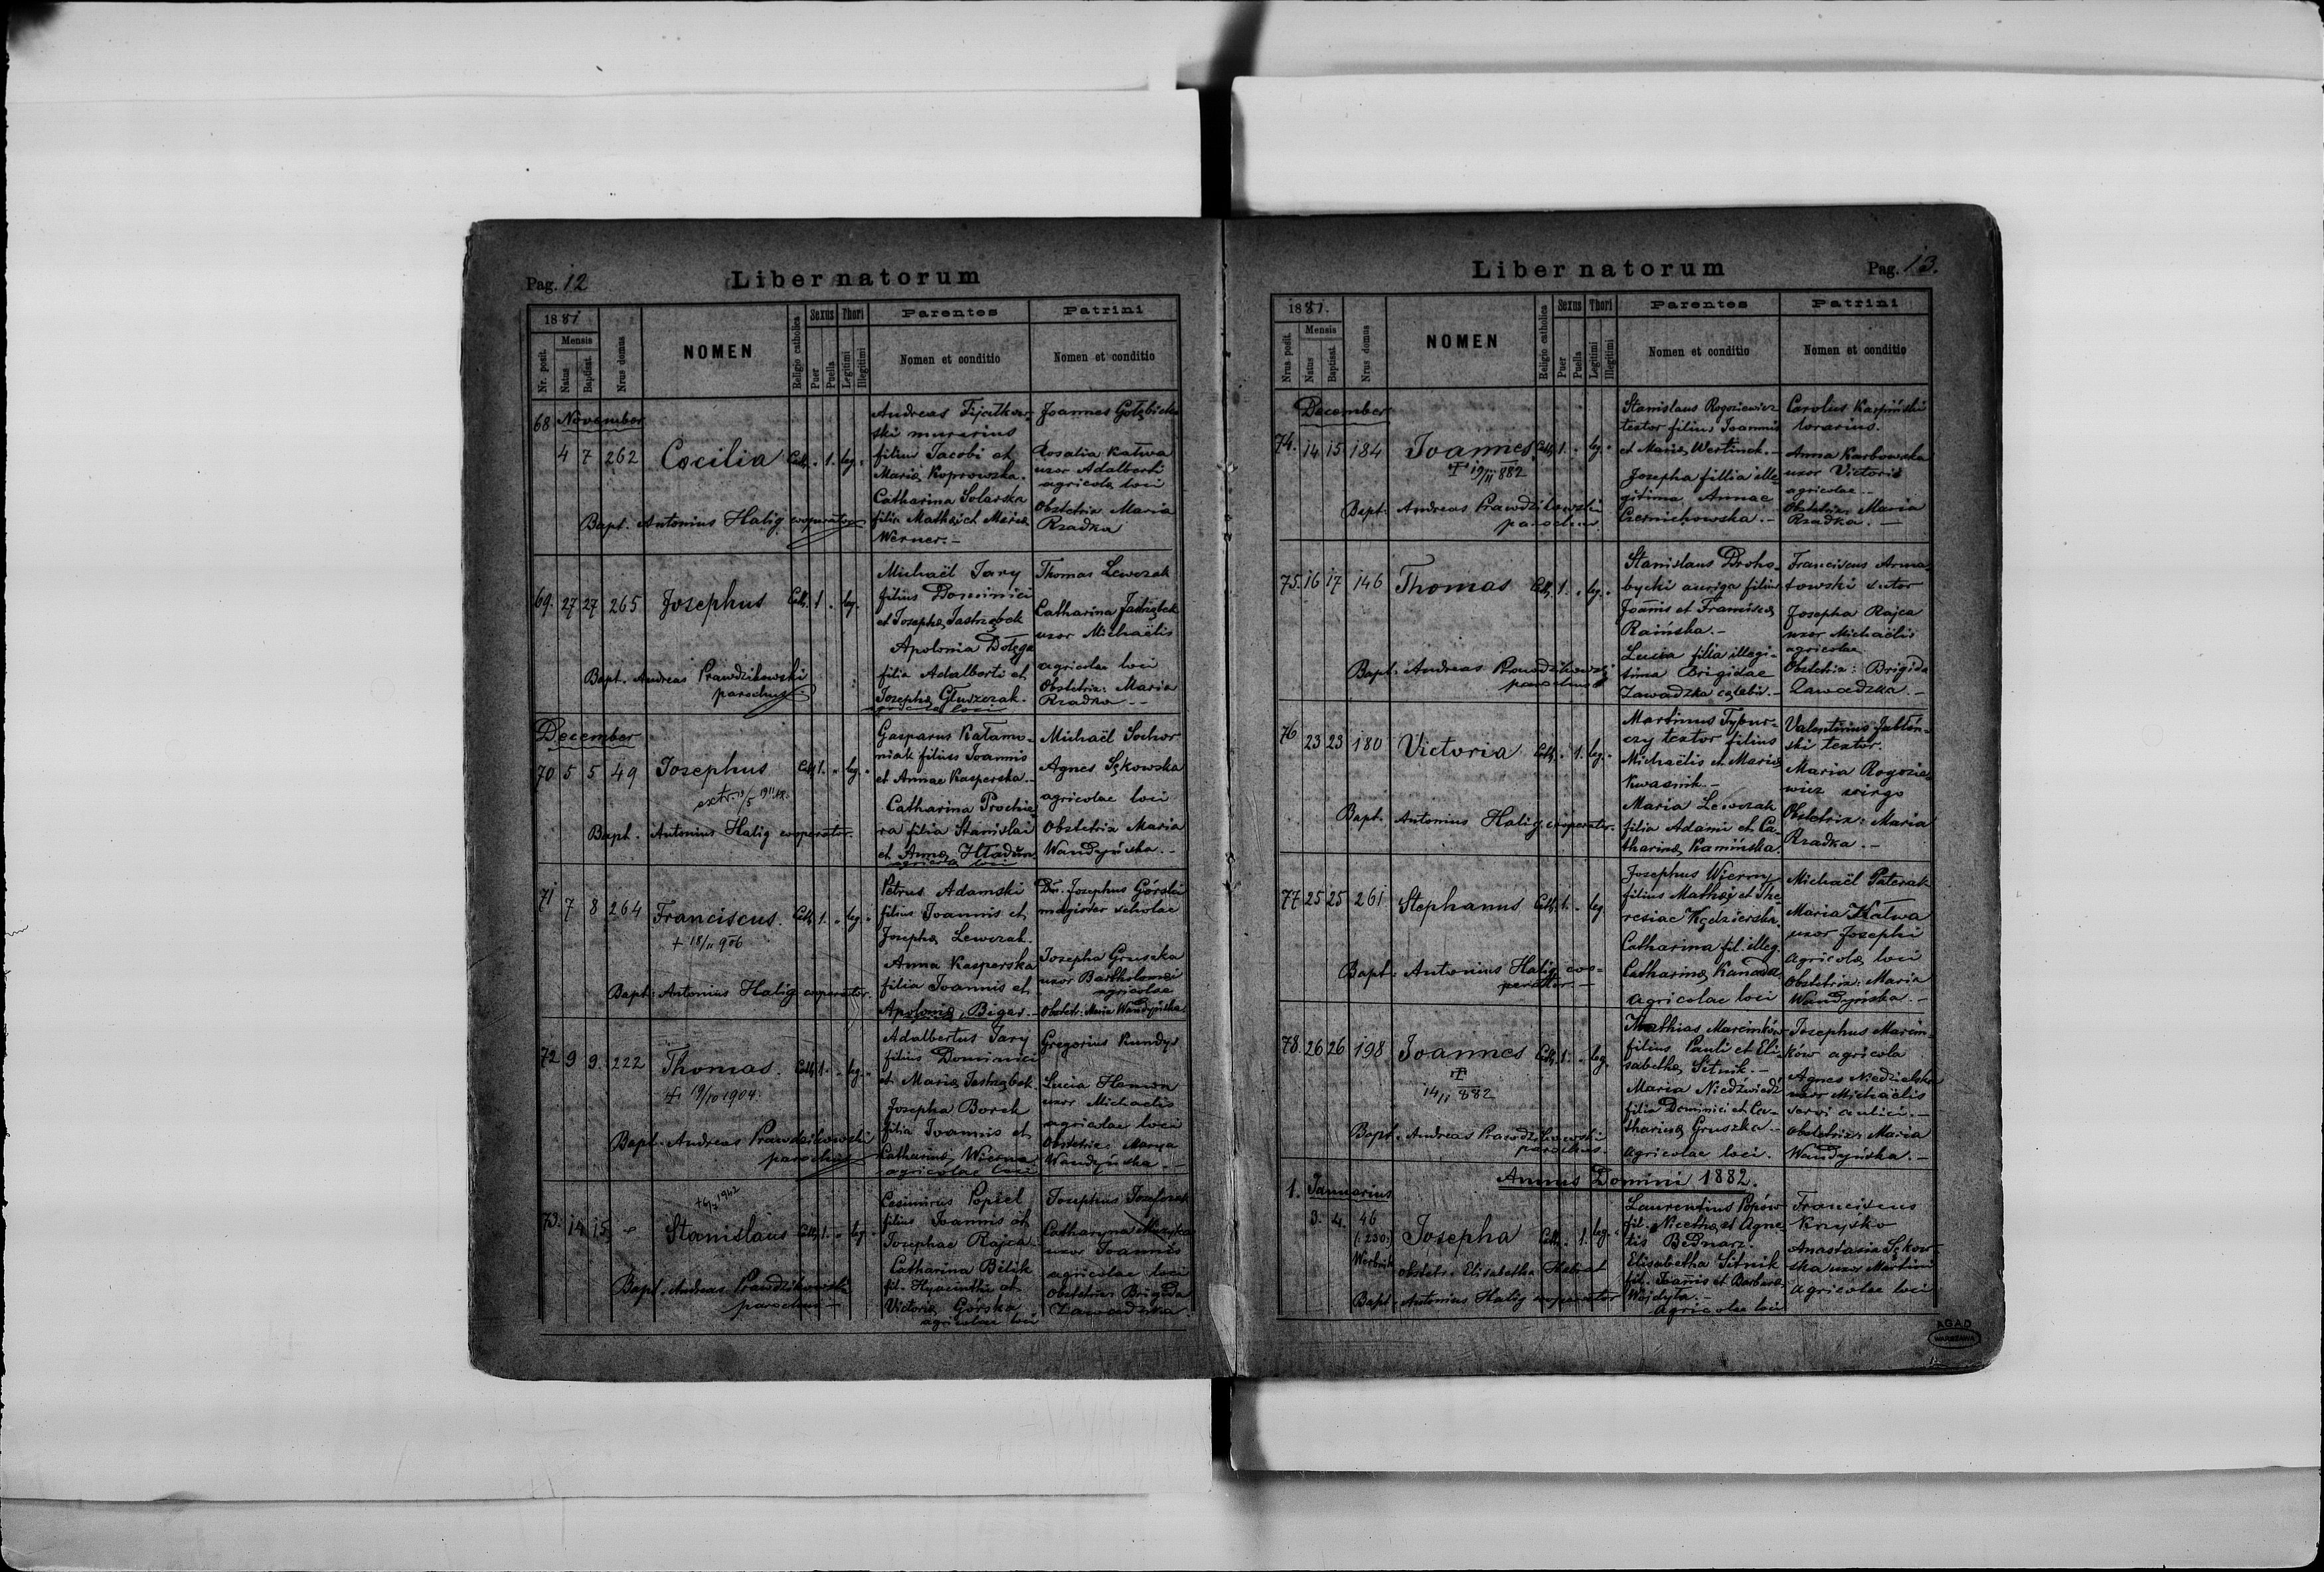 Pag. 12
Liber natorum
1881
Nr. posit.
Mensis
Natus
Baptisat.
Nrus domus
NOMEN
Religio catholica
Sexus
Puer
Puella
Thori
Legitimi
Illegitimi
Parentes
Nomen et conditio
Patrini
Nomen et conditio
68 November
4 7 262 Cœcilia Cath. " 1. leg. "
Bapt. Antonius Halig cooperator
Andreas Fijałkow-
ski murarius
filius Jacobi et
Mariæ Koprowska.
Catharina Solarska
filia Mathæi et Mariæ
Werner.-
Joannes
Rosalia Katwa
uxor Adalberti
agricola loci
Obstetrix Maria
Rzadka
69. 27 27 265 Josephus Cath. 1 " leg.
Bapt. Andreas Prawdzikowski
parochus
Michaël Jary
filius Dominici
et Josephæ Jastrzębek
Apolonia Dołęga
filia Adalberti et
Josephæ Głuszczak.
agricolæ loci
Thomas Lewczak
Catharina Jastrzębek
uxor Michaëlis
agricolae loci
Obstetrix: Maria
Rzadka -
December
70 5 5 49 Josephus Cath. 1. " leg. "
Bapt. Antonius Halig cooperator.
Gasparus Katamo-
niak filius Joannis
et Annae Kasperska.-
Catharina Prochie-
ra filia Stanislai
et Annæ Hładun
agricolæ loci
Michaël Sochor
Agnes Sękowska
agricolae loci
Obstetrix Maria
Wandyńska.-
71 7 8 264 Franciscus. Cath. 1. " leg. "
+ 18/11 906
Bapt: Antonius Halig cooperator.
Petrus Adamski
filius Joannis et
Josephæ Lewczak.
Anna Kasperska
filia Joannis et
Apoloniæ Bigar.-
Dn. Josephus Górski
magister scholae
Josepha Gruszka
uxor Bartholomæi
agricolae
Obstetr: Maria Wandyńska.
72 9 9. 222 Thomas. Cath. 1. " leg. "
19/10 1904.
Bapt: Andreas Prawdzikowski
parochus
Adalbertus Jary
filius Dominici
et Mariæ Jastrzębek.
Josepha Borek
filia Joannis et
Catharinæ Wierna
agricolae loci
Gregorius Kundys
Lucia Hamon
uxor Michaelis
agricolae loci
Obstetrix: Marya
Wandyńska.-
1942
73. 14 15 Stanislaus Cath. 1. " leg. "
Bapt: Andreas Prawdzikowski
parochus -
Casimirus Popiel
filius Joannis et
Josephae Rajca
Catharina Bielik
fil. Hyacinthi et
Victoriæ Górska
agricolae loci
Josephus
Catharyna
uxor Joannis
agricolae loci
Obstetrix Brigida
Zawadzka.
Liber natorum
Pag. 13.
1881.
Nrus posit.
Mensis
Natus
Baptisat.
Nrus domus
NOMEN
Religio catholica
Sexus
Puer
Puella
Thori
Legitimi
Illegitimi
Parentes
Nomen et conditio
Patrini
Nomen et conditio
December
74. 14 15 184 Joannes Cath. 1. " leg. "
19/II 882
Bapt: Andreas Prawdzikowski
parochus
Stanislaus Rogoziewicz
textor filius Joannis
et Mariæ Wertinek.-
Josepha fillia ille-
gitima Annae
Czernichowska.-
Carolus Karpiński
lorarius.
Anna Karbowska
uxor Victoris
agricolae.-
Obstetrix Maria
Rzadka.-
75. 16 17 146 Thomas Cath. 1. " leg. "
Bapt: Andreas Prawdzikowski
parochus
Stanislaus Droho-
bycki auriga filius
Joannis et Franciscæ
Raińska.-
Lucia filia illegi-
tima Brigidae
Zawadzka cælebi.-
Franciscus Arma-
towski sutor
Josepha Rajca
uxor Michaëlis
agricolae
Obstetrix: Brigida
Zawadzka.-
76 23 23 180 Victoria Cath. " 1. leg. "
Bapt. Antonius Halig cooperator.
Martinus Tybur-
czy textor filius
Michaëlis et Mariæ
Kwasnik.-
Maria Lewczak
filia Adami et Ca-
tharinæ Kamińska.
Valentinus Jabłoń-
ski textor.
Maria Rogozie-
wicz virgo
Obstetrix: Maria
Rzadka.-
77 25 25 261 Stephanus Cath. 1. " leg.
Bapt: Antonius Halig coo-
perator.-
Josephus Wierny
filius Mathæi et The-
resiae Kędzierska.
Catharina fil. illeg.
Catharinæ Kanada.
agricolae loci
Michaël Paterak
Maria Katwa
uxor Josephi
agricolæ loci
Obstetrix: Maria
Wandyńska.-
78. 26 26 198 Joannes Cath. 1. " leg.
14/II 882
Bapt: Andreas Prawdzikowski
parochus.
Mathias Marcinków
filius Pauli et Eli-
sabethæ Sitnik.-
Maria Niedźwiedź
filia Dominici et Ca-
tharinæ Gruszka.-
agricolae loci.
Josephus Marcin-
ków agricola
Agnes Niedzielska
uxor Michaëlis
servi aulici.-
Obstetrix Maria
Wandyńska.-
Annus Domini 1882.
1. Januarius
3. 4. 46
(230)
Werbnik
Josepha Cath. " 1. leg. "
Obstetr: Elisabetha
Bapt: Antonius Halig cooperator
Laurentius Popów
fil. Nicethæ et Agne-
tis Bednarz.
Elisabetha Sitnik
fil. Joannis et Barbaræ
Wojdyła.-
agricolae loci
Franciscus
Krzyśko
Anastasia Sękow-
ska uxor Martini
agricolae loci
AGAD
WARSZAWA